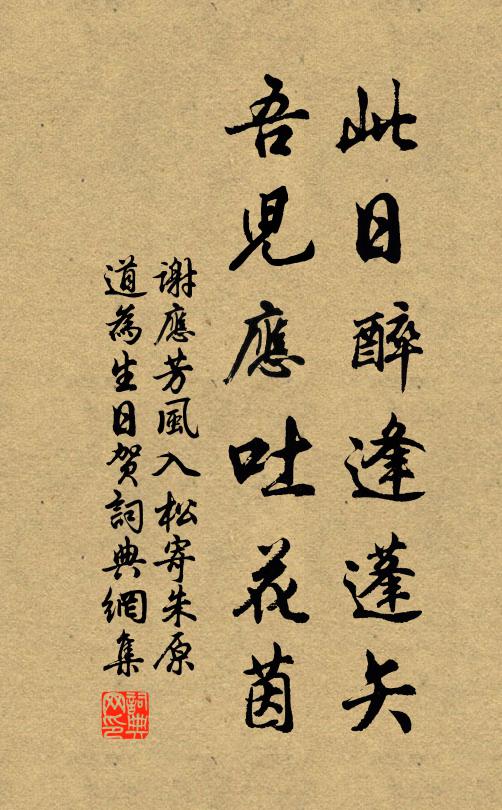 此日醉逢蓬矢
吾児應吐花茵
謝應芳風入松寄朱原
道為生日賀詞典網集
詞典網印